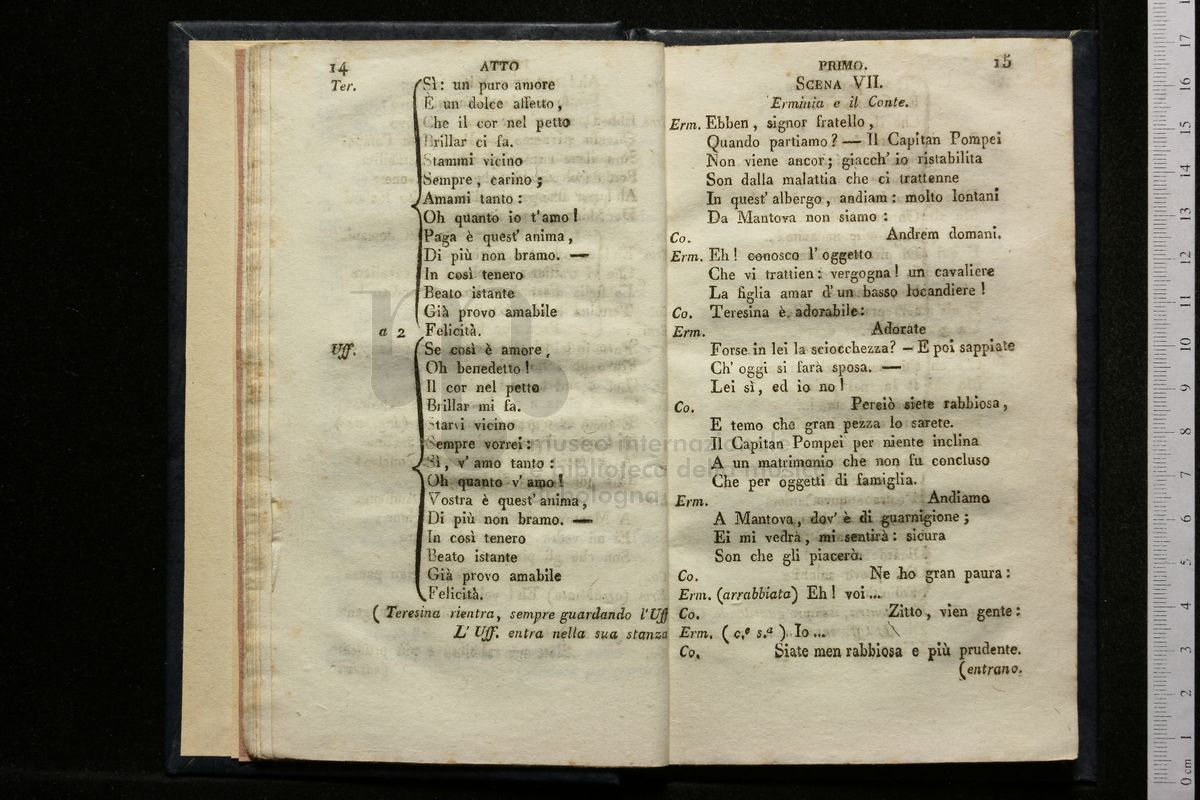 14
ATTO
Ter. Sì: un puro amore
È un dolce affetto,
Che il cor nel petto
Brillar ci fa.
Stammi vicino
Sempre, carino;
Amami tanto:
Oh quanto io t'amo!
Paga è quest' anima,
Di più non bramo. —
In così tenero
Beato istante
Già provo amabile
a 2 Felicità.
Uff. Se così è amore,
Oh benedetto!
Il cor nel petto
Brillar mi fa.
Starvi vicino
Sempre vorrei:
Sì, v' amo tanto:
Oh quanto v' amo!
Vostra è quest' anima,
Di più non bramo. —
In così tenero
Beato istante
Già provo amabile
Felicità.
(Teresina rientra, sempre guardando l'Uff
L' Uff. entra nella sua stanza
PRIMO.
15
SCENA VII.
Erminia e il Conte.
Erm. Ebben, signor fratello,
Quando partiamo? — Il Capitan Pompei
Non viene ancor; giacch' io ristabilita
Son dalla malattia che ci trattenne
In quest' albergo, andiam: molto lontani
Da Mantova non siamo:
Co. Andrem domani.
Erm. Eh! conosco l' oggetto
Che vi trattien: vergogna! un cavaliere
La figlia amar d' un basso locandiere!
Co. Teresina è adorabile:
Erm. Adorate
Forse in lei la sciocchezza? — E poi sappiate
Ch' oggi si farà sposa. —
Lei sì, ed io no!
Co. Perciò siete rabbiosa,
E temo che gran pezza lo sarete.
Il Capitan Pompei per niente inclina
A un matrimonio che non fu concluso
Che per oggetti di famiglia.
Erm. Andiamo
A Mantova, dov' è di guarnigione;
Ei mi vedrà, mi sentirà: sicura
Son che gli piacerò.
Co. Ne ho gran paura:
Erm. (arrabbiata) Eh! voi...
Co. Zitto, vien gente:
Erm. (c.e s.a) Io...
Co. Siate men rabbiosa e più prudente.
(entrano.
museo internazio
biblioteca della musica
bologna
0 cm 1 2 3 4 5 6 7 8 9 10 11 12 13 14 15 16 17